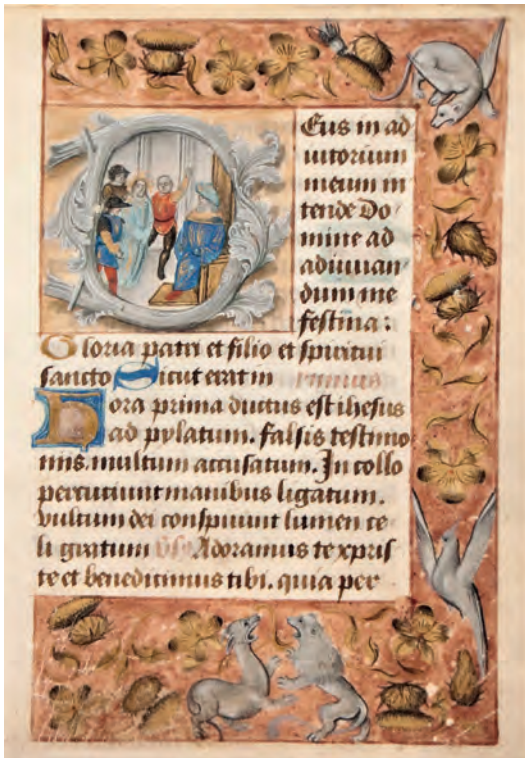 Eus in ad
iutorium
meum in
tende Do
mine ad
adiuuan
dum me
festina :
Gloria patri et filio et spiritui
sancto Sicut erat in
Hora prima ductus est ihesus
ad pylatum. falsis testimo
niis. multum accusatum. In collo
percutiunt manibus ligatum.
vultum dei conspuunt lumen ce
li gratum Adoramus te xpris
te et benedicimus tibi. quia per